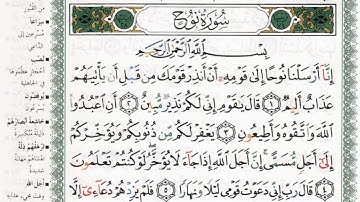 سُورَةُ نُوحٍ
بِسْمِ ٱللَّهِ ٱلرَّحْمَٰنِ ٱلرَّحِيمِ
إِنَّآ أَرْسَلْنَا نُوحًا إِلَىٰ قَوْمِهِۦٓ أَنْ أَنذِرْ قَوْمَكَ مِن قَبْلِ أَن يَأْتِيَهُمْ
عَذَابٌ أَلِيمٌ ١ قَالَ يَٰقَوْمِ إِنِّي لَكُمْ نَذِيرٌ مُّبِينٌ ٢ أَنِ ٱعْبُدُوا۟
ٱللَّهَ وَٱتَّقُوهُ وَأَطِيعُونِ ٣ يَغْفِرْ لَكُم مِّن ذُنُوبِكُمْ وَيُؤَخِّرْكُمْ
إِلَىٰٓ أَجَلٍ مُّسَمًّى ۚ إِنَّ أَجَلَ ٱللَّهِ إِذَا جَآءَ لَا يُؤَخَّرُ ۖ لَوْ كُنتُمْ تَعْلَمُونَ
٤ قَالَ رَبِّ إِنِّي دَعَوْتُ قَوْمِي لَيْلًا وَنَهَارًا ٥ فَلَمْ يَزِدْهُمْ دُعَآءِىٓ إِلَّا